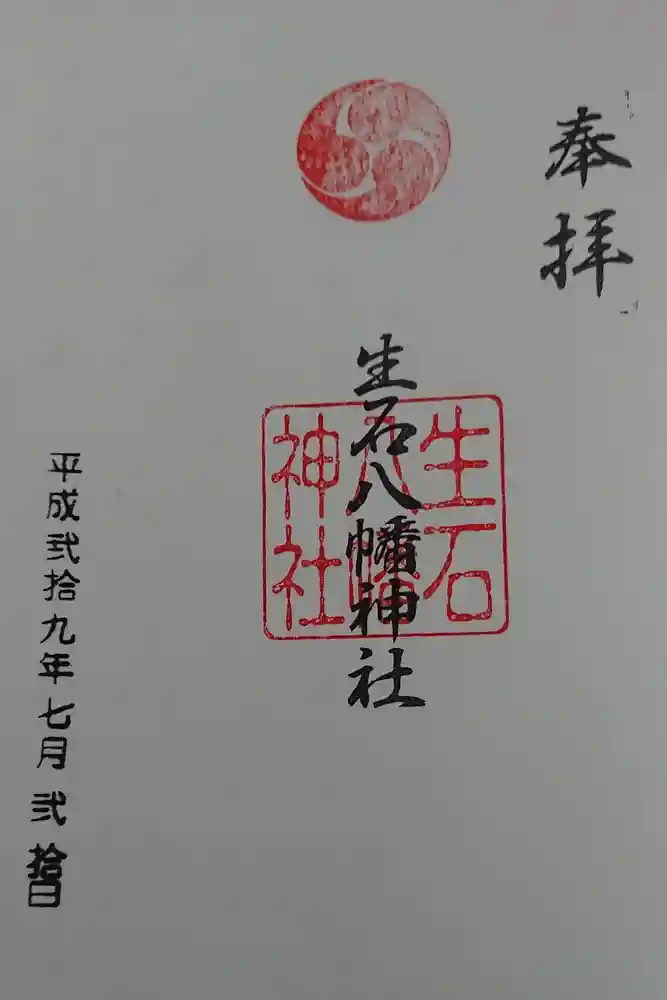 奉拝
生石八幡神社
生石八幡神社
平成弐拾九年七月弐拾日